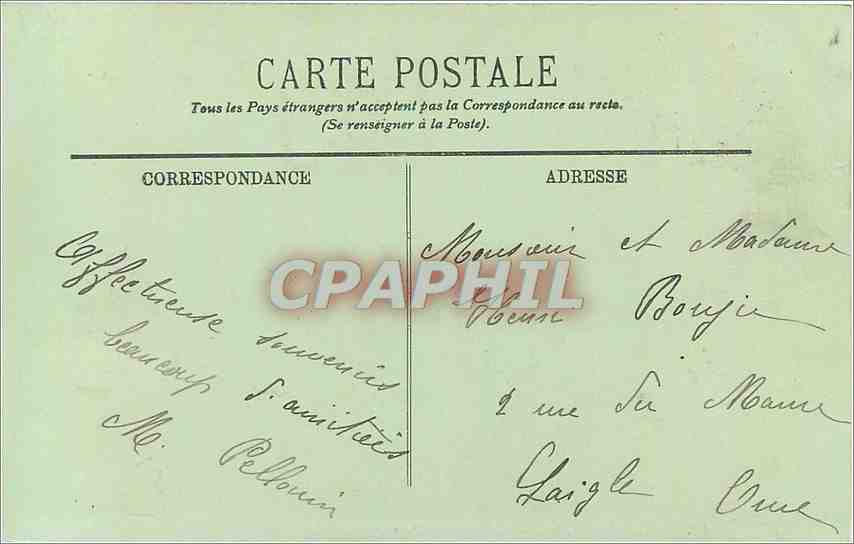 CARTE POSTALE
Tous les Pays étrangers n'acceptent pas la Correspondance au recto.
(Se renseigner à la Poste).
CORRESPONDANCE
Affectueuse souvenirs
beaucoup d'amitiés
M. Pellouin
ADRESSE
Monsieur et Madame
Henri Bougie
2 rue du
Laigle Orne
CPAPHIL